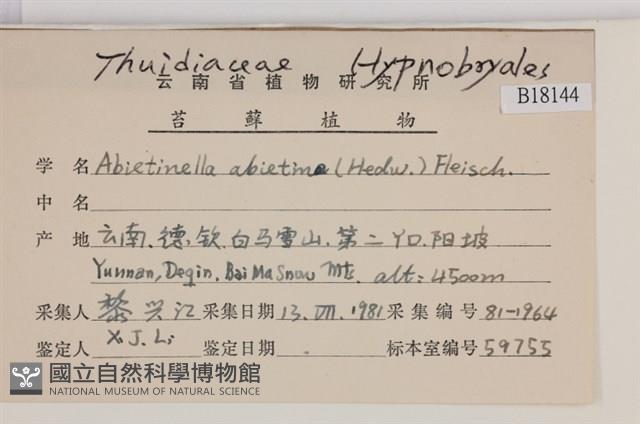 Thuidiaceae Hypnobryales
云南省植物研究所
B18144
苔藓植物
学名 Abietinella abietina (Hedw.) Fleisch.
中名
产地 云南、德钦、白马雪山、第二丫口、阳坡
Yunnan, Deqin, Bai Ma Snow Mt. alt: 4500m
采集人 黎兴江 采集日期 13. VIII. 1981 采集编号 81-1964
鉴定人 X. J. Li 鉴定日期 标本室编号 59755
國立自然科學博物館
NATIONAL MUSEUM OF NATURAL SCIENCE